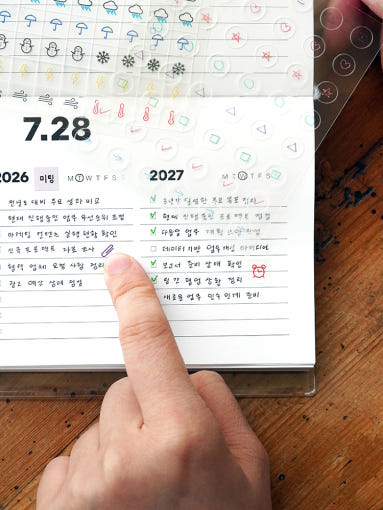 7.28
2026 미팅 M T W T F S
전년도 대비 주요 성과 비교
현재 진행중인 업무 우선순위 조정
마케팅 컨텐츠 실행 현황 확인
신규 프로젝트 자료 조사
협력 업체 요청 사항 정리
광고 예산 상태 점검
2027 M T W T F S
주요 목표 정리
현재 진행 중인 프로젝트 점검
다음달 업무 계획
데이터 기반 업무 개선 아이디어
보고서 준비 상태 확인
팀 간 협업 상황 정리
새로운 업무 인수 인계 준비